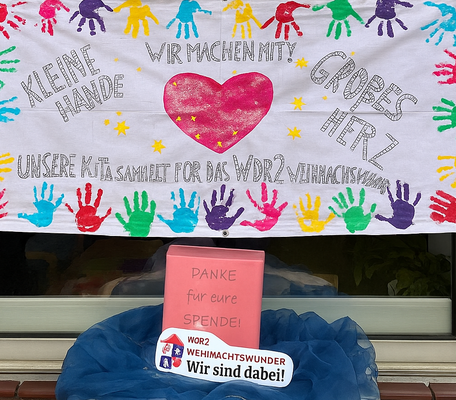 WIR MACHEN MIT!
KLEINE
HÄNDE
GROßES
HERZ
UNSERE KITA SAMMELT FÜR DAS WDR2 WEIHNACHTSWUNDER
PANKE
für eure
SPENDE!
WOR2
WEHIMACHTSWUNDER
Wir sind dabei!